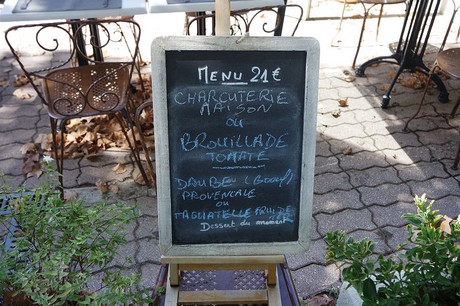 MENU 21€
CHARCUTERIE
MAISON
OU
BROUILLADE
TOMATE
DAUBE (BOEUF)
PROVENCALE
OU
TAGLIATELLE FRUIDE
Dessert du moment